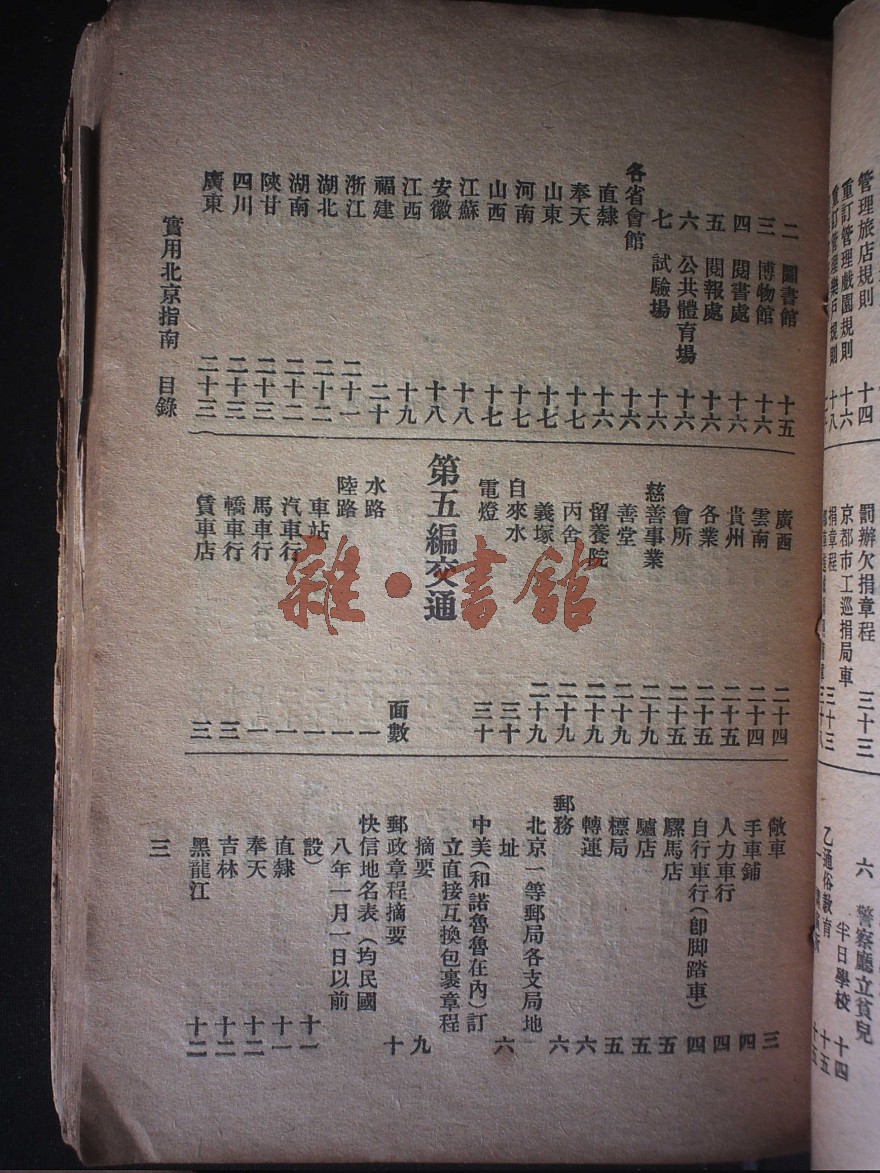 管理旅店規則 十四
重訂管理戲園規則 十六
重訂管理樂戶規則 十八
罰辦欠捐章程 三十三
京都市工巡捐局車
捐章程 三十三
六 警察廳立貧兒
半日學校 十四
乙通俗教育 十五
二 圖書館 十五
三 博物館 十六
四 閱書處 十六
五 閱報處 十六
六 公共體育場 十六
七 試驗場 十六
各省會館 十六
直隸 十六
奉天 十七
山東 十七
河南 十七
山西 十七
江蘇 十八
安徽 十八
江西 十九
福建 二十
浙江 二十一
湖北 二十二
湖南 二十二
陝甘 二十三
四川 二十三
廣東 二十三
廣西 二十四
雲南 二十四
貴州 二十五
各業 二十五
會所 二十五
慈善事業 二十九
善堂 二十九
留養院 二十九
丙舍 二十九
義塚 二十九
自來水 三十
電燈 三十
第五編交通
面數
水路 一
陸路 一
車站 一
汽車行 一
馬車行 一
轎車行 三
賃車店 三
敞車 三
手車鋪 四
人力車行 四
自行車行(即脚踏車) 四
騾馬店 五
驢店 五
標局 五
轉運 六
郵務 六
北京一等郵局各支局地
址 六
中美(和諾魯魯在內)訂
立直接互換包裹章程
摘要 九
郵政章程摘要 十
快信地名表(均民國
八年一月一日以前
設) 十一
直隸 十一
奉天 十二
吉林 十二
黑龍江 十二
實用北京指南 目錄
三
雜·書館